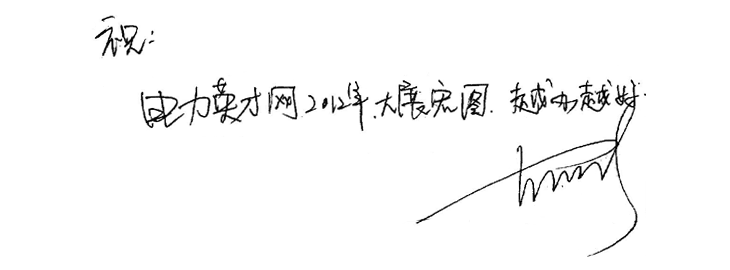 祝:
电力英才网2012年大展宏图.越办越好.